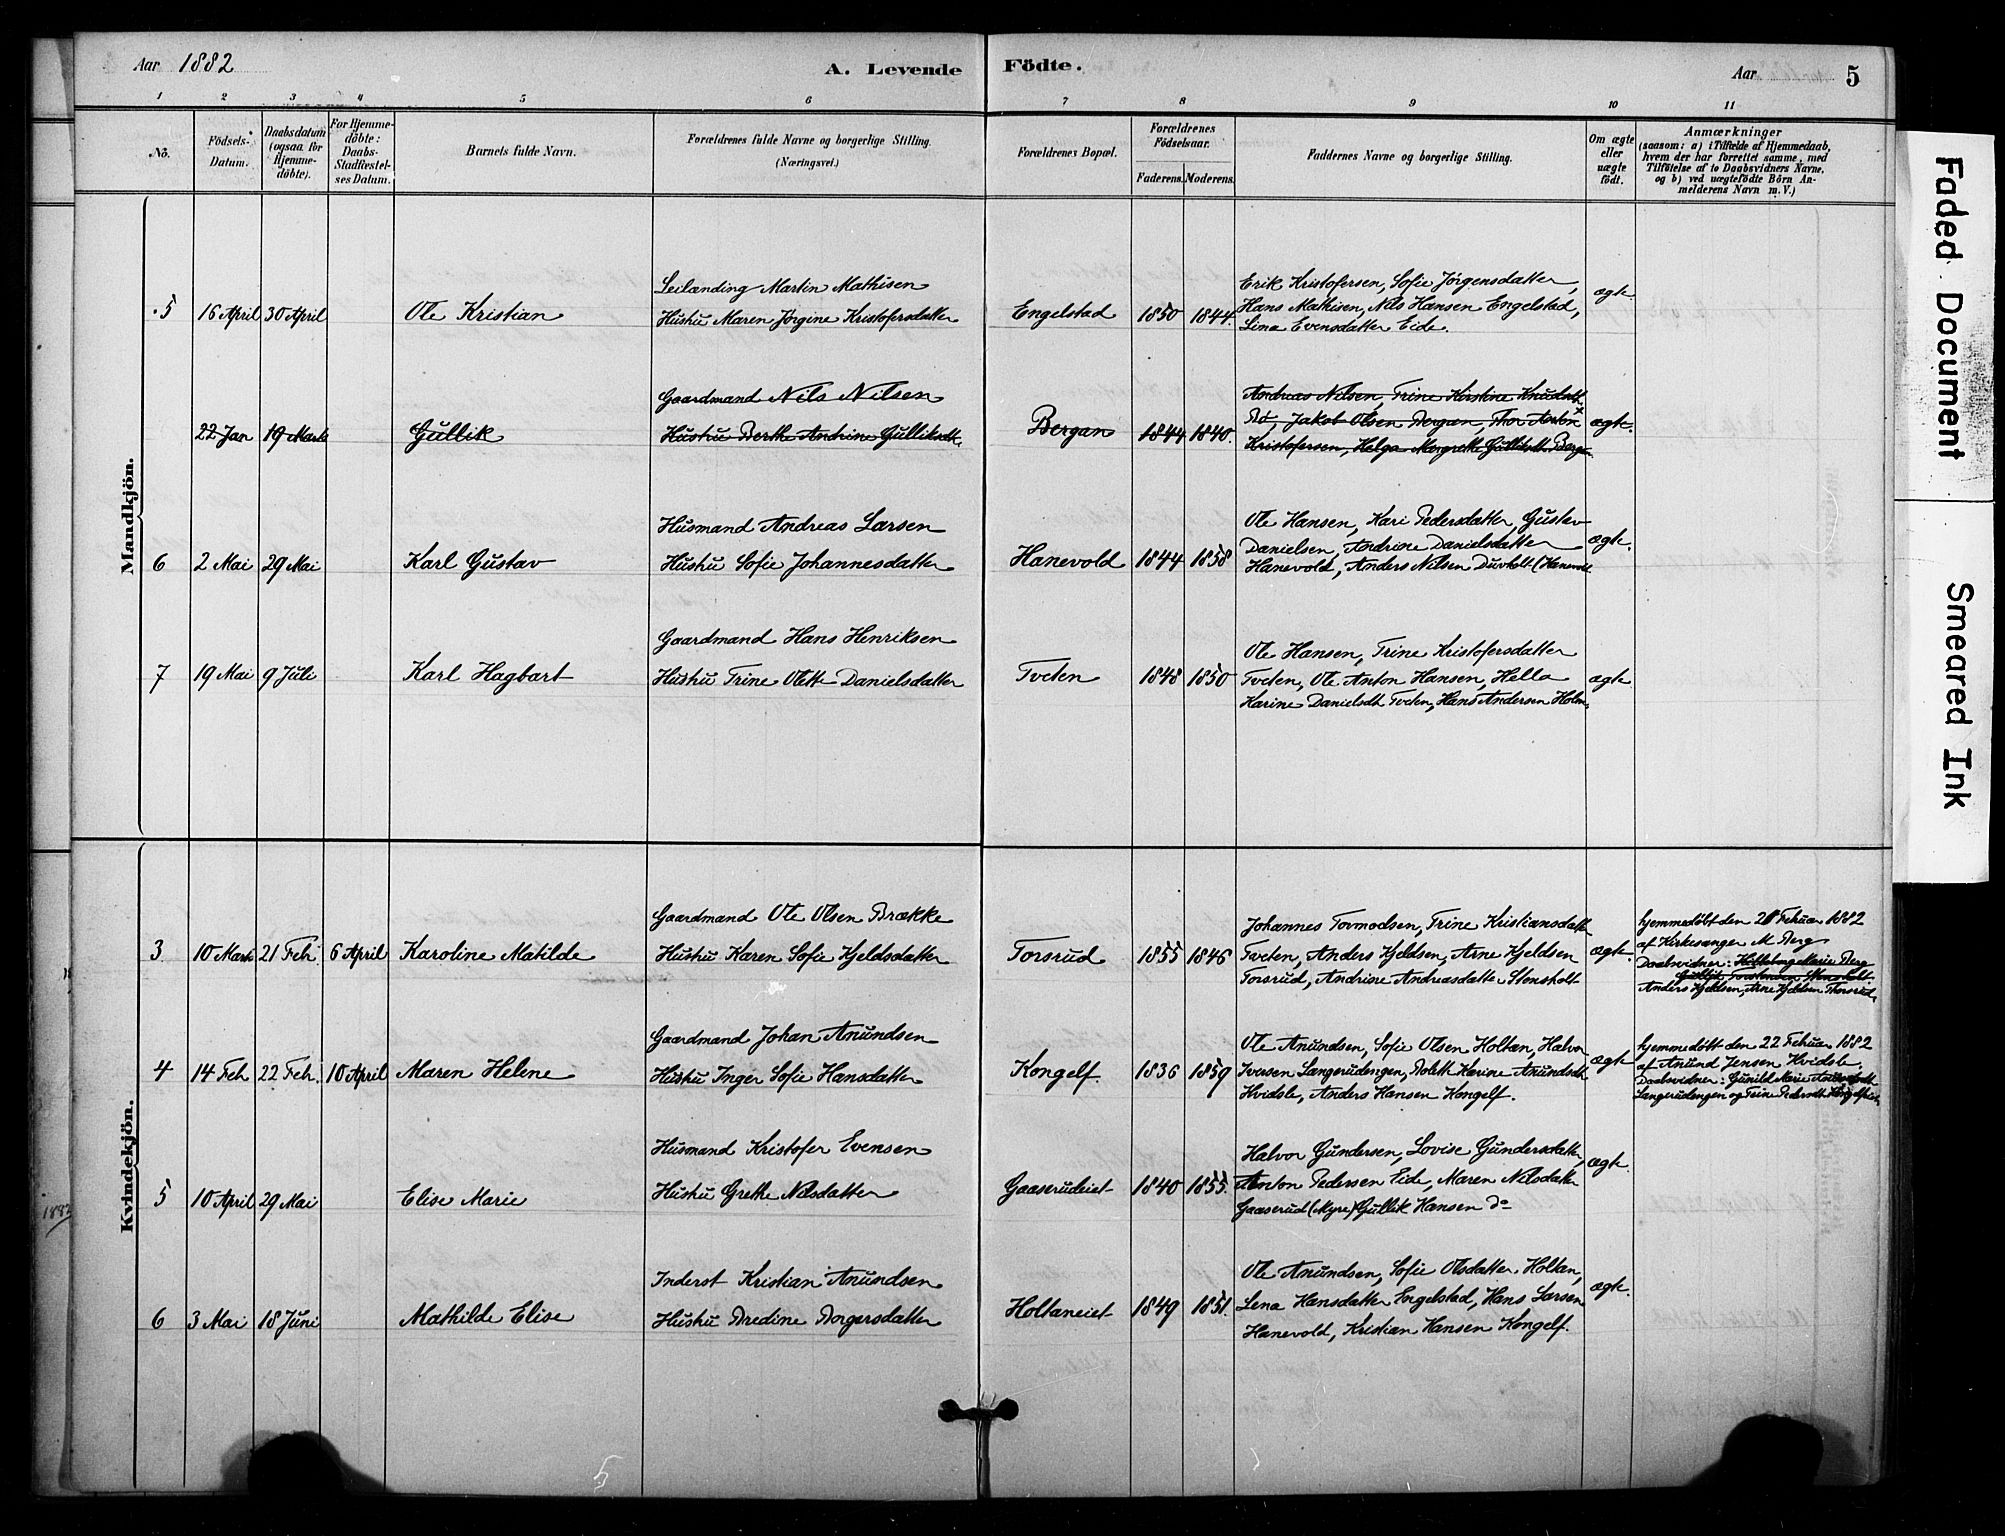 Aar 1882
A. Levende Födte.
Aar
5
1 2 3 4 5 6 7 8 9 10 11
No.
Födsels-
Datum.
Daabsdatum
(ogsaa for
Hjemme-
döbte).
For Hjemme-
döbte:
Daabs-
Stadfæstel-
ses Datum.
Barnets fulde Navn.
Forældrenes fulde Navne og borgerlige Stilling.
(Næringsvei.)
Forældrenes Bopæl.
Forældrenes
Födselsaar.
Faderens. Moderens.
Faddernes Navne og borgerlige Stilling.
Om ægte
eller
uægte
födt.
Anmærkninger
(saasom: a) i Tilfælde af Hjemmedaab,
hvem der har forrettet samme, med
Tilföielse af to Daabsvidners Navne,
og b) ved uægtefödte Börn An-
melderens Navn m. V.)
Mandkjön.
5 16 April 30 April
Ole Kristian
Leilænding Martin Mathisen
Hustru Maren Jörgine Kristofersdatter
Engelstad 1850 1844.
Erik Kristofersen, Sofie Jörgensdatter,
Hans Mathisen, Nils Hansen Engelstad,
Lina Evensdatter Eide.
ægte
22 Jan 19 Marts
Gullik
Gaardmand Nils Nilsen
Hustru Berthe Andrine Gulliksdtt.
Bergan 1844 1840.
Andreas Nilsen, Trine Kirstine Knudsdtt.
Bö, Jakob Olsen Bergan, Thor Anton
Kristofersen, Helga Margrethe Gulliksdtt. Berga
ægte.
6 2 Mai 29 Mai
Karl Gustav
Husmand Andreas Larsen
Hustru Sofie Johannesdatter
Hanevold 1844 1858
Ole Hansen, Kari Pedersdatter, Gustav
Danielsen, Andrine Danielsdatter
Hanevold, Anders Nilsen Duvholt (Hanevold
ægte.
7 19 Mai 9 Juli
Karl Hagbart
Gaardmand Hans Henriksen
Hustru Trine Olette Danielsdatter
Tveten 1848 1850
Ole Hansen, Trine Kristofersdatter
Tveten, Ole Anton Hansen, Hella
Karine Danielsdt. Tveten, Hans Andersen Holm
ægte
Kvindekjön.
3 10 Marts 21 Feb. 6 April
Karoline Matilde
Gaardmand Ole Olsen Brække
Hustru Karen Sofie Kjeldsdatter
Torsrud 1855 1846
Johannes Tormodsen, Trine Kristiansdatt
Tveten, Anders Kjeldsen, Arne Kjeldsen
Torsrud, Andrine Andreasdatter Stensholt
ægte.
hjemmedöbt den 21 Februar 1882
af Kirkesanger M Berg
Daabsvidner: Marie Berg
Gullik Torstensen Stensholt
Anders Kjeldsen, Arne Kjeldsen Thorsrud.
4 14 Feb 22 Feb. 10 April
Maren Helene
Gaardmand Johan Anundsen
Hustru Inger Sofie Hansdatter
Kongelf. 1836 1859
Ole Anundsen, Sofie Olsen Holtan, Halvor
Iversen Langerudengen, Bolette Karine Anundsdtt
Hvidsle, Anders Hansen Kongelf.
ægte
hjemmedöbt den 22 Februar 1882
af Anund Jensen Hvidsle.
Daabsvidner: Gunild Marie Andersdtt
Langerudengen og Trine Pedersdtt.
5 10 April 29 Mai
Elise Marie
Husmand Kristofer Evensen
Hustru Grethe Nilsdatter
Gaaserudeiet 1840 1855.
Halvor Gundersen, Lovise Gundersdatter,
Anton Pedersen Eide, Maren Nilsdatter
Gaaserud (Myre) Gullik Hansen Do
ægte.
6 3 Mai 18 Juni
Mathilde Elise
Inderst Kristian Anundsen
Hustru Bredine Borgersdatter
Holtaneiet 1849 1851.
Ole Anundsen, Sofie Olsdatter Holtan,
Lena Hansdatter Engelstad, Hans Larsen
Hanevold, Kristian Hansen Kongelf.
ægte.
5
Faded Document
Smeared Ink